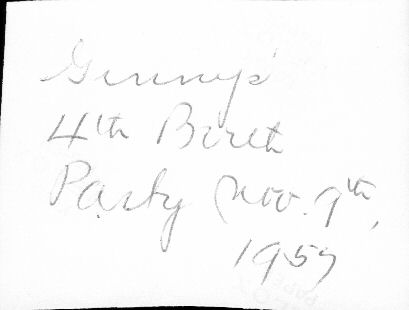 Ginny's
4th Birth
Party Nov. 9th,
1957